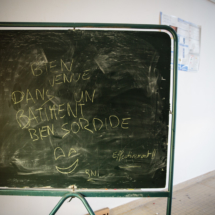 BIEN
VENUE
DANS UN
BATIMENT
BEN SORDIDE